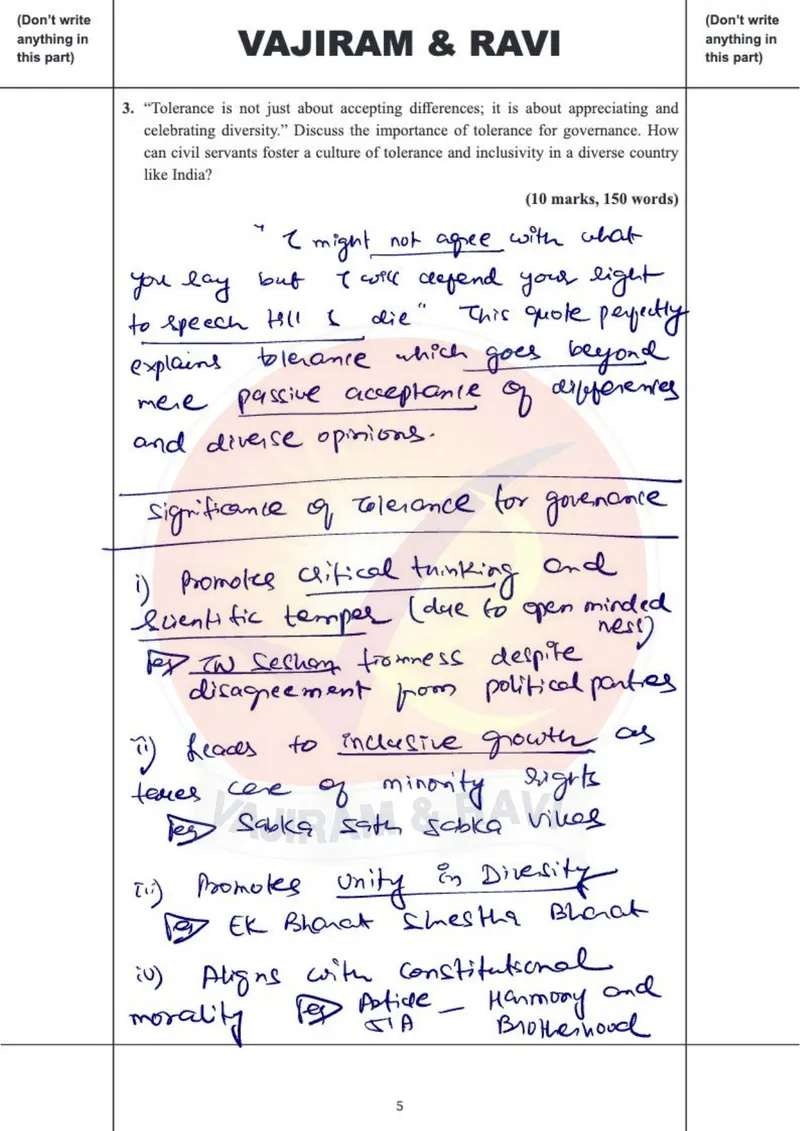 (Don't write
anything in
this part)
VAJIRAM & RAVI
(Don't write
anything in
this part)
3. “Tolerance is not just about accepting differences; it is about appreciating and
celebrating diversity.” Discuss the importance of tolerance for governance. How
can civil servants foster a culture of tolerance and inclusivity in a diverse country
like India?
(10 marks, 150 words)
" I might not agree with what
you say but I will defend your right
to speech till I die" This quote perfectly
explains tolerance which goes beyond
mere passive acceptance of differences
and diverse opinions.
Significance of Tolerance for governance
i) Promotes critical thinking and
scientific temper (due to open minded
ness)
eg TN Seshan firmness despite
disagreement from political parties
ii) Leads to inclusive growth as
takes care of minority rights
eg Sabka Sath Sabka Vikas
iii) Promotes Unity in Diversity
eg EK Bharat Shrestha Bharat
iv) Aligns with constitutional
morality eg Article 51A – Harmony and
Brotherhood
VAJIRAM & RAVI
5